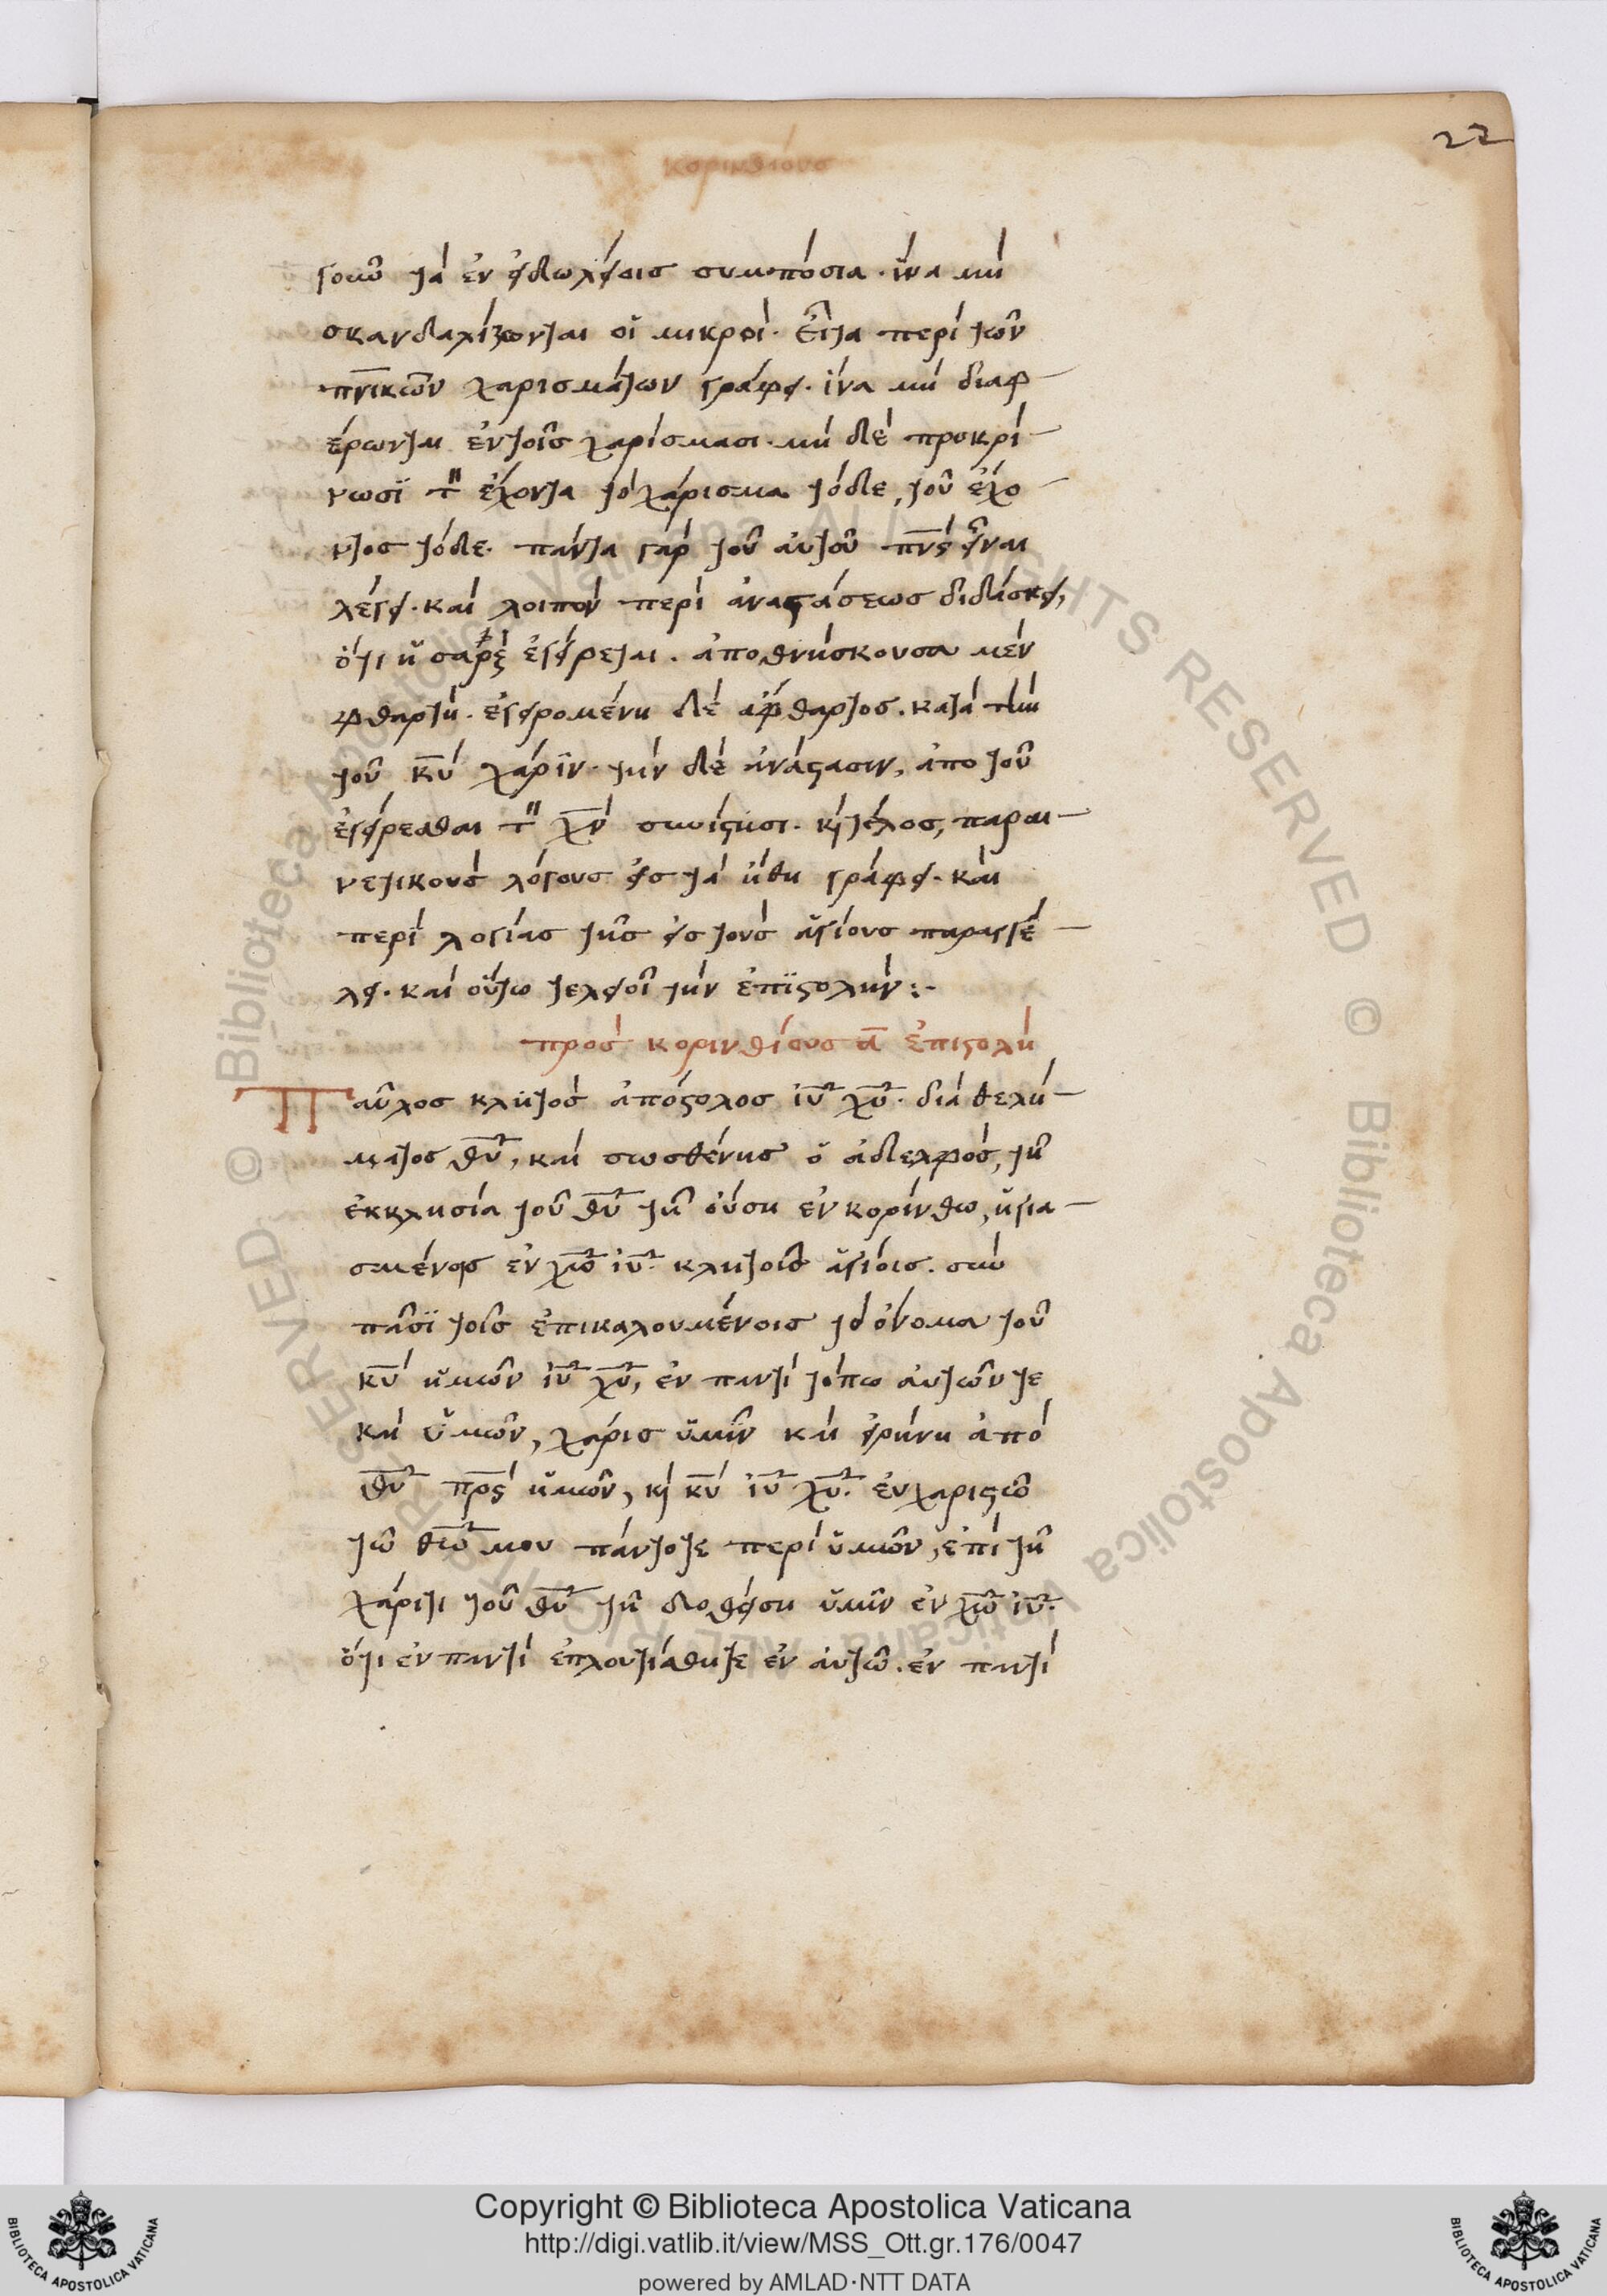 22
κορινθίους
γουν τὰ ἐν εἰδωλείοις συμπόσια. ἵνα μὴ
σκανδαλίζωνται οἱ μικροί. εἶτα περὶ τῶν
πν̅ικῶν χαρισμάτων γράφει. ἵνα μὴ διαφ
έρωνται ἐν τοῖς χαρίσμασι. μὴ δὲ προκρί
νωσϊ τ̎ ἔχοντα τὸ χάρισμα τόδε, τοῦ ἔχο
ντος τόδε. πάντα γὰρ τοῦ αὐτοῦ πν̅ς εἶναι
λέγει. καὶ λοιπὸν περὶ ἀναστάσεως διδάσκει,
ὅτι ἡ σὰρξ ἐγείρεται. ἀποθνήσκουσα μὲν
φθαρτή. ἐγειρομένη δὲ ἄφθαρτος. κατὰ τὴν
τοῦ κ̅υ χάρϊν. τὴν δὲ ἀνάστασιν, ἀπο τοῦ
ἐγείρεσθαι τ̎ χ̅ν συνίστησι. κὶ τέλος, παραι
νετικοὺς λόγους εἰς τὰ ἤθη γράφει. καὶ
περὶ λογίας τῆς εἰς τοὺς ἁγίους παραγγέ
λει. καὶ οὕτω τελειοῖ τὴν ἐπϊστολήν:-
πρὸς κορινθίους α̅ ἐπιστολή
Παῦλος κλητὸς ἀπόστολος ἰ̅υ χ̅υ. διὰ θελή
ματος θ̅υ, καὶ σωσθένης ὁ ἀδελφὸς, τῆ
ἐκκλησία τοῦ θ̅υ τῆ οὔση ἐν κορίνθω, ἡγια
σμένοις ἐν χ̅ω ἰ̅υ. κλητοῖς ἁγίοις. σὺν
πᾶσϊ τοῖς ἐπικαλουμένοις τὸ ὄνομα τοῦ
κ̅υ ἡμῶν ἰ̅υ χ̅υ, ἐν παντὶ τόπω αὐτῶν τε
καὶ ὑμῶν, χάρις ὑμῖν καὶ εἰρήνη ἀπὸ
θ̅υ π̅ρς ἡμῶν, κὶ κ̅υ ἰ̅υ χ̅υ. εὐχαριστῶ
τῶ θ̅ω μου πάντοτε περὶ ὑμῶν, ἐπὶ τῆ
χάριτι τοῦ θ̅υ τῆ δοθείση ὑμῖν ἐν χ̅ω ἰ̅υ.
ὅτι ἐν παντὶ ἐπλουτίσθητε ἐν αὐτῶ. ἐν παντὶ
© Biblioteca Apostolica Vaticana ALL RIGHTS RESERVED
© Biblioteca Apostolica Vaticana ALL RIGHTS RESERVED
Copyright © Biblioteca Apostolica Vaticana
http://digi.vatlib.it/view/MSS_Ott.gr.176/0047
powered by AMLAD·NTT DATA
BIBLIOTECA APOSTOLICA VATICANA
BIBLIOTECA APOSTOLICA VATICANA